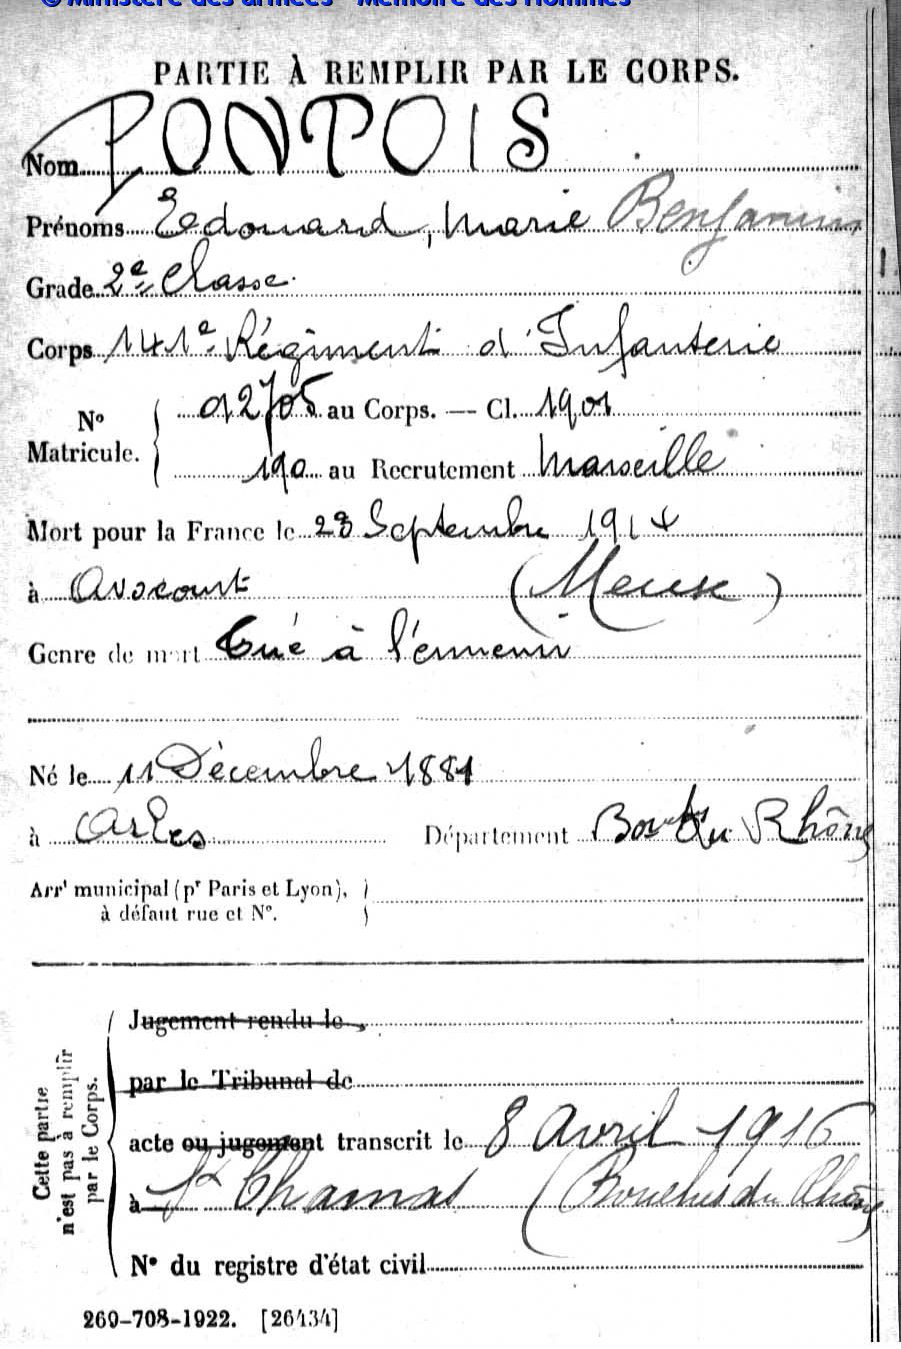 © Ministère des armées - Mémoire des Hommes
PARTIE À REMPLIR PAR LE CORPS.
Nom PONPOIS
Prénoms Edouard, Marie Benjamin
Grade 2e Classe
Corps 141e Régiment d'Infanterie
No Matricule. { 02705 au Corps. — Cl. 1901
190 au Recrutement Marseille
Mort pour la France le 23 Septembre 1914
à Avocourt (Meuse)
Genre de mort Tué à l'ennemi
Né le 11 Décembre 1881
à Arles Département Bouches du Rhône
Arrt municipal (pr Paris et Lyon),
à défaut rue et No.
Cette partie
n'est pas à remplir
par le Corps.
Jugement rendu le
par le Tribunal de
acte ou jugement transcrit le 8 Avril 1916
à St Chamas (Bouches du Rhône)
No du registre d'état civil
260-708-1922. [26434]